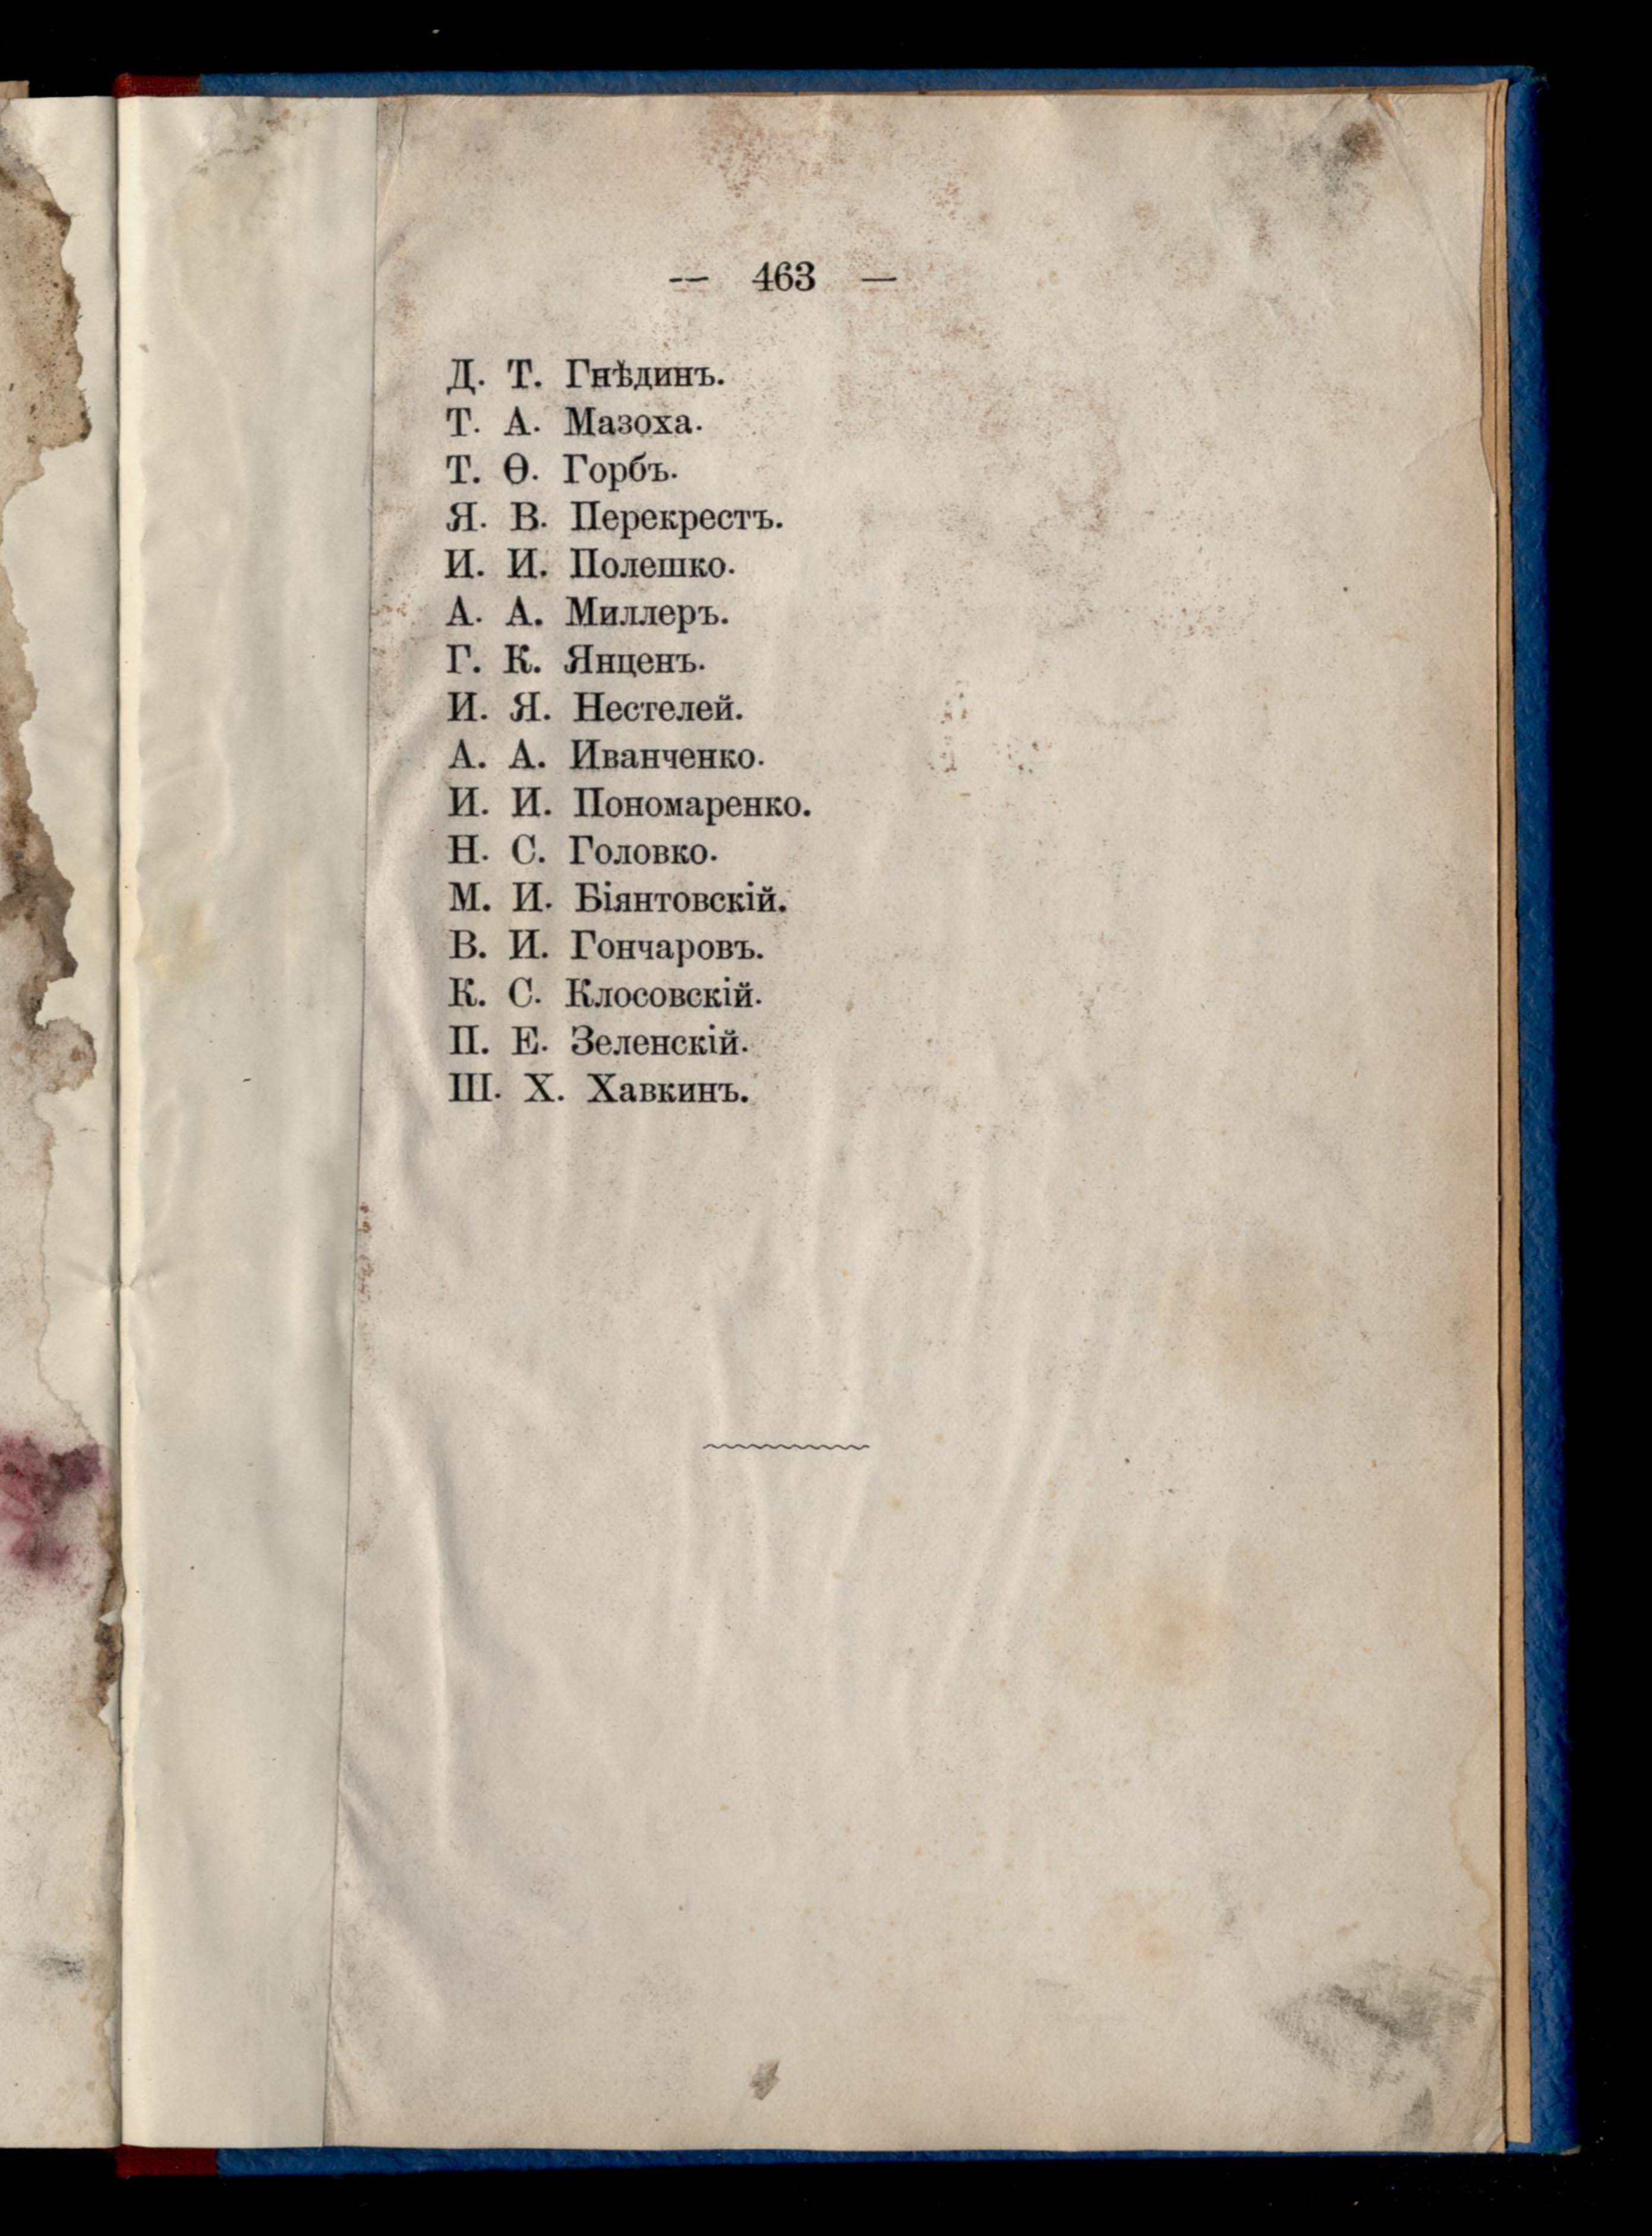 — 463 —
Д. Т. Гнѣдинъ.
Т. А. Мазоха.
Т. Ѳ. Горбъ.
Я. В. Перекрестъ.
И. И. Полешко.
А. А. Миллеръ.
Г. К. Янценъ.
И. Я. Нестелей.
А. А. Иванченко.
И. И. Пономаренко.
Н. С. Головко.
М. И. Біянтовскій.
В. И. Гончаровъ.
К. С. Клосовскій.
П. Е. Зеленскій.
Ш. Х. Хавкинъ.